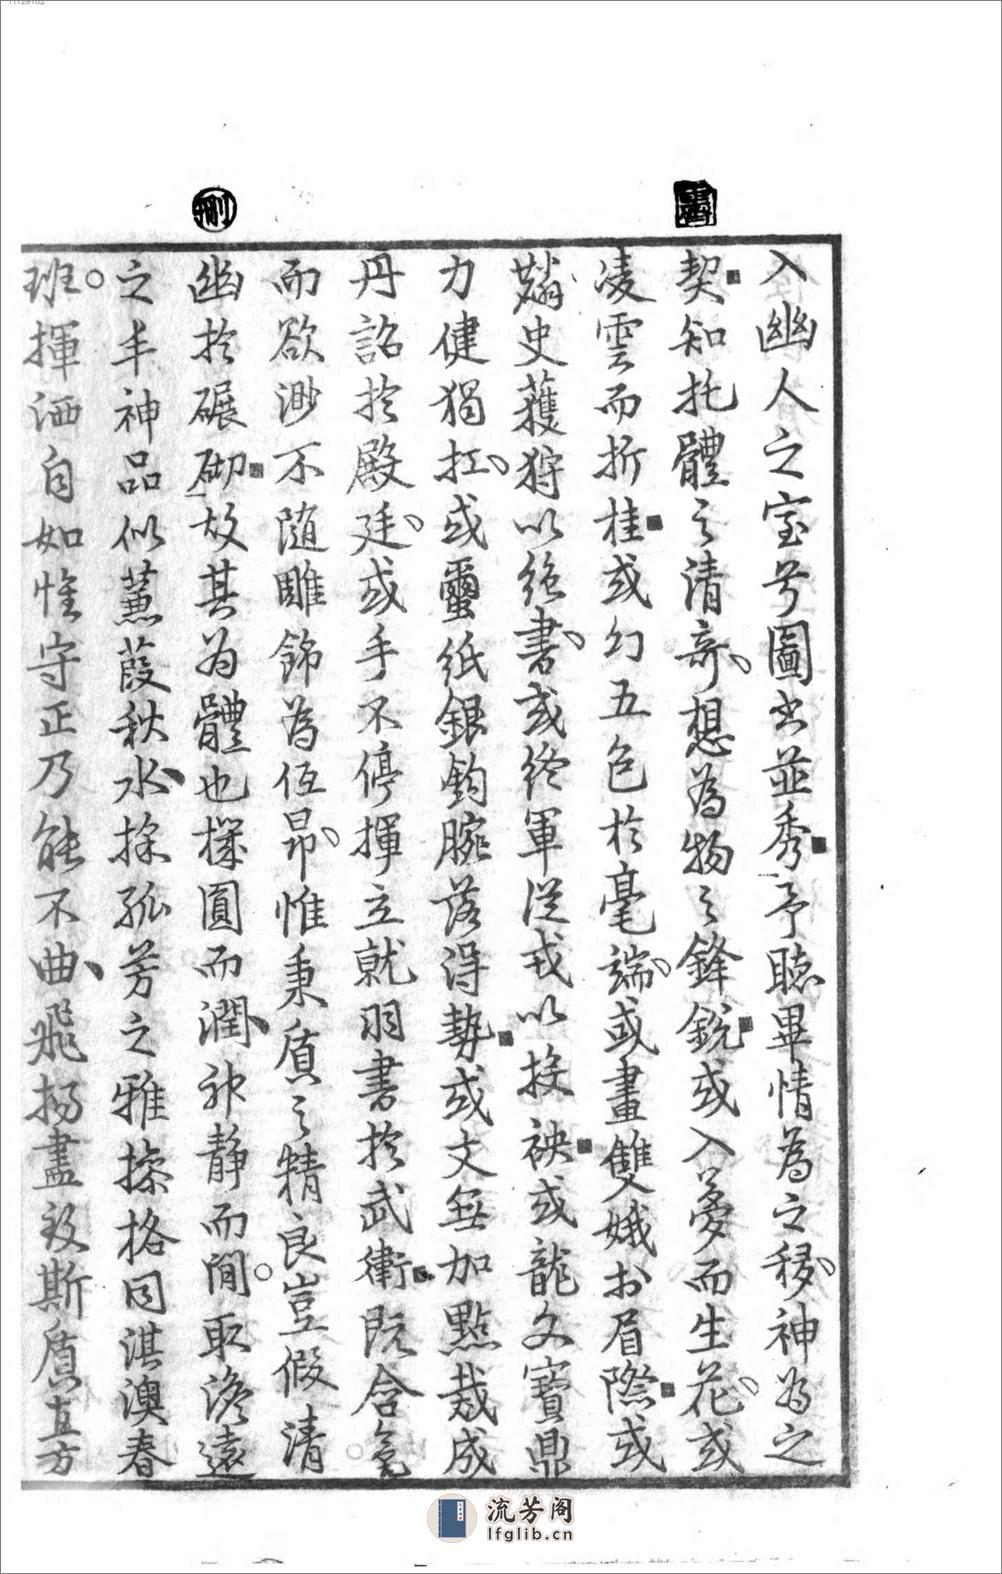 入幽人之室兮圖出並秀予聽畢情為之移神為之
契知托體之清奇想為物之鋒銳或入夢而生花或
凌雲而折桂或幻五色於毫端或畫雙娥於眉際或
麟史獲狩以絕書或終軍從戎以投袂或龍文寶鼎
力健獨扛或蠒紙銀鈎腕落得勢或文無加點裁成
丹詔於殿廷或手不停揮立就羽書於武衛既含毫
而欲渺不隨雕飾為低昂惟秉質之精良豈假清
幽於碾砌故其為體也樸圓而潤神靜而閒取澹遠
之丰神品似蒹葭秋水採孤芳之雅操格同淇澳春
班揮洒自如惟守正乃能不曲飛揚盡致斯質直方
删
流芳阁
lfglib.cn
11129102